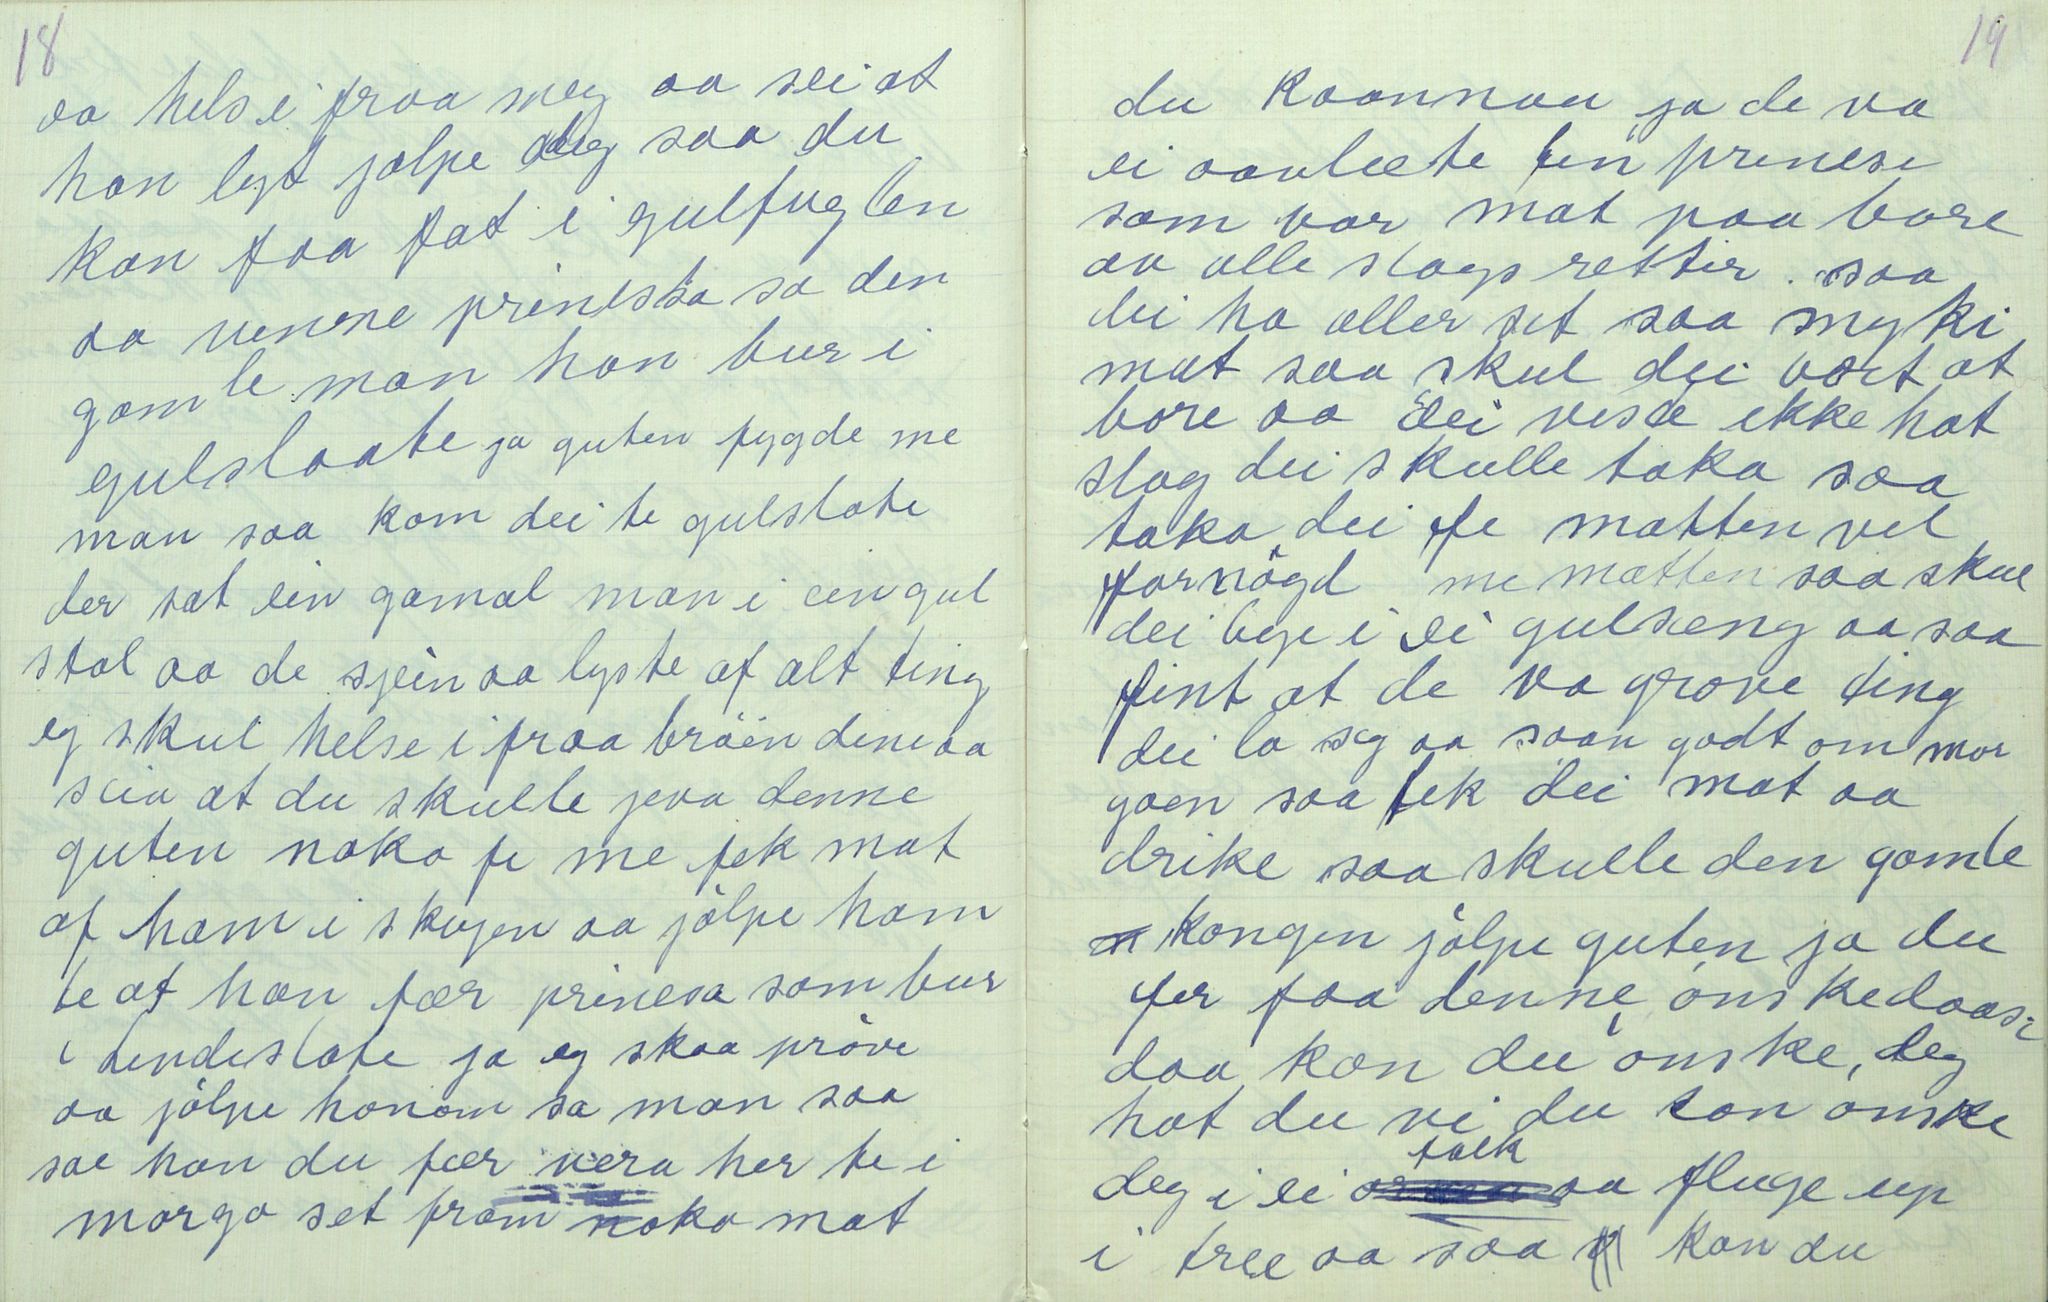 18
aa helse i fraa meg aa sei at
han lyt jølpe deg saa du
kan faa fat i gulfuglen
aa venne prinessa sa den
gamle man han bur i
gulslaate ja guten fygde me
man saa kom dei te gulslote
der sat ein gamal man i ein gul
stol aa de sjein aa lyste af alt ting
eg skul helse i fraa bröen dine aa
seia at du skulle jeva denne
guten noko fe me fek mat
af ham i skogen aa jölpe ham
te at han fær prinesa som bur
i lendeslote ja eg skaa pröve
aa jölpe honom sa man saa
sae han du fær vera her te i
morgo set fram noko mat
19
du kaannau ja de va
ei aanlete ein prinese
som bar mat paa bore
aa alle slags rettir saa
dei ha aller set saa myki
mat saa skul dei vært at
bore aa dei viste ikke hat
slag dei skulle taka saa
taka dei fe matten vel
fornögd me matten saa skul
dei lige i ei gulseng aa saa
fint at de va grove ting
dei la seg aa saav godt om mor
goen saa fek dei mat aa
drike saa skulle den gamle
kongen jölpe guten ja du
fer faa denne önskedaase
daa kan du önske deg
hat du vi du kan önske
deg i ei falk aa fluge up
i tree aa saa kan du